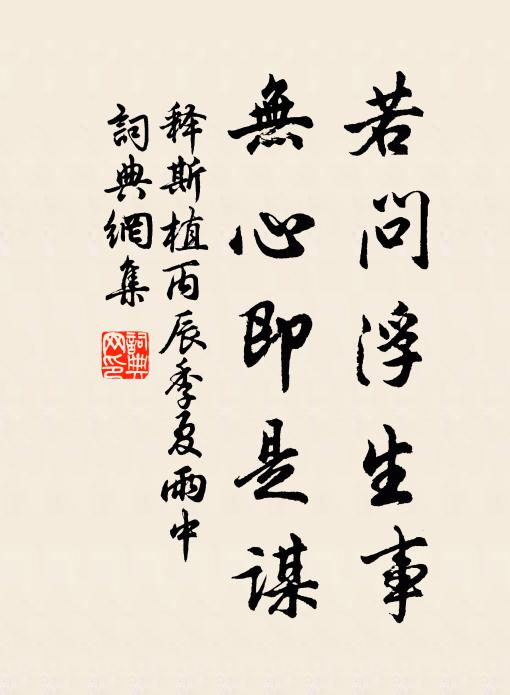 若問浮生事
無心即是謀
释斯植丙辰季夏雨中
詞典網集
詞典网印